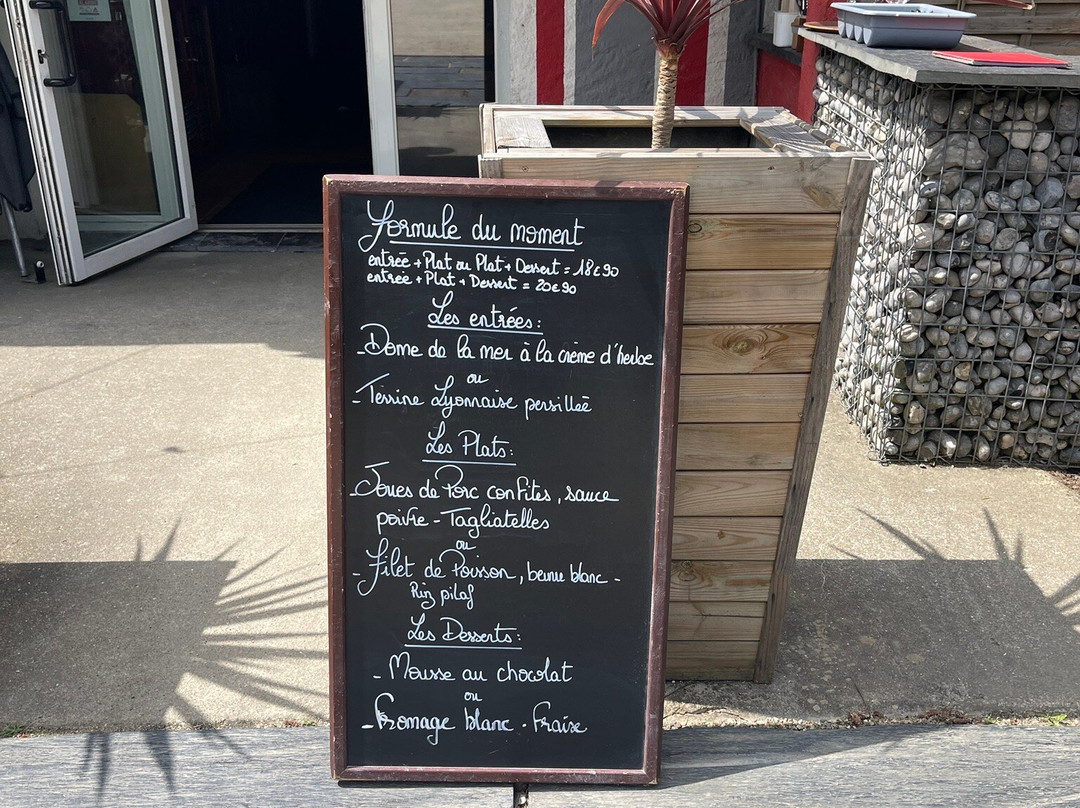 Formule du moment
entrée + Plat ou Plat + Dessert = 18€90
entrée + Plat + Dessert = 20€90
Les entrées:
- Dome de la mer à la crème d'herbe
ou
- Terrine Lyonnaise persillée
Les Plats:
- Joues de Porc confites, sauce
poivre - Tagliatelles
ou
- Filet de Poisson, beurre blanc -
Riz pilaf
Les Desserts:
- Mousse au chocolat
ou
- Fromage blanc - Fraise